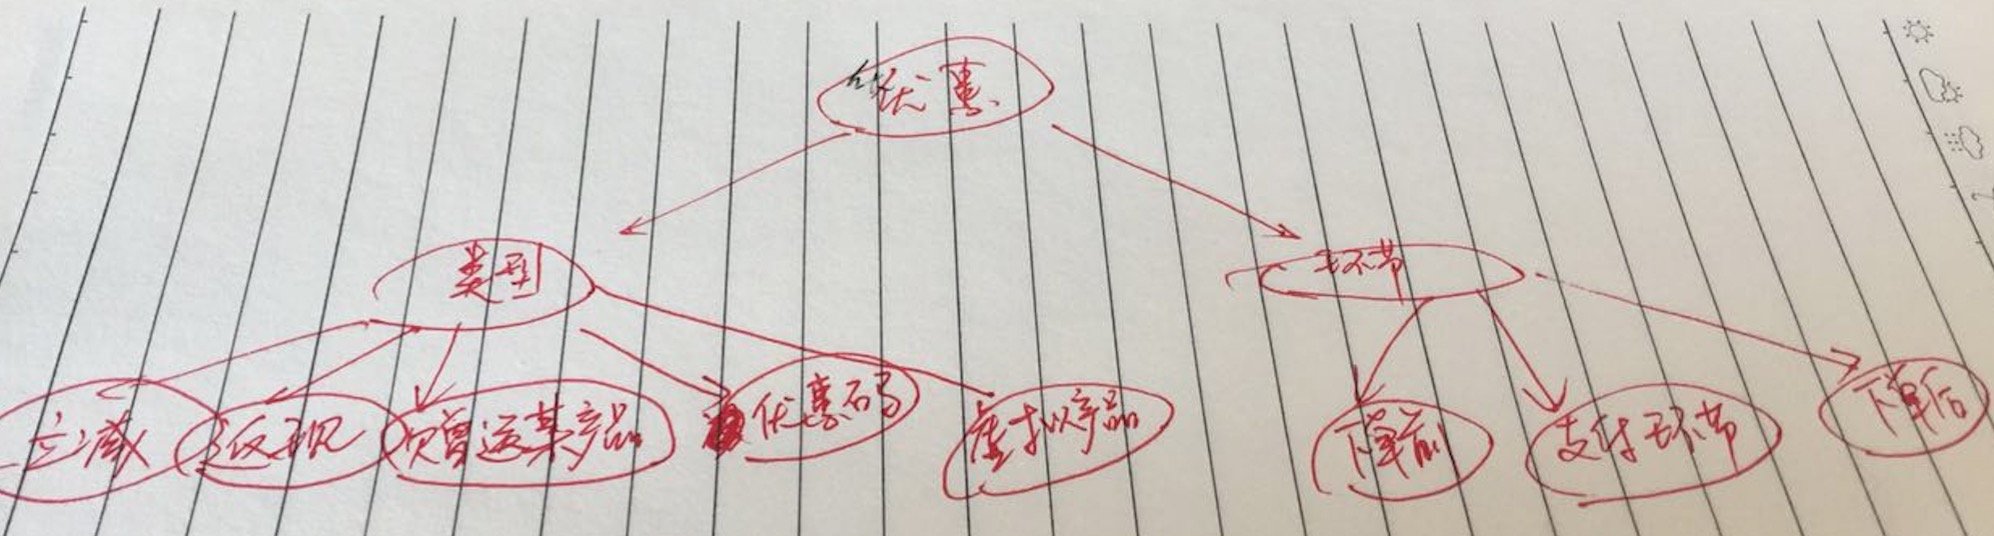 优惠
类型
环节
立减
返现
赠送某产品
优惠码
虚拟产品
下单前
支付环节
下单后